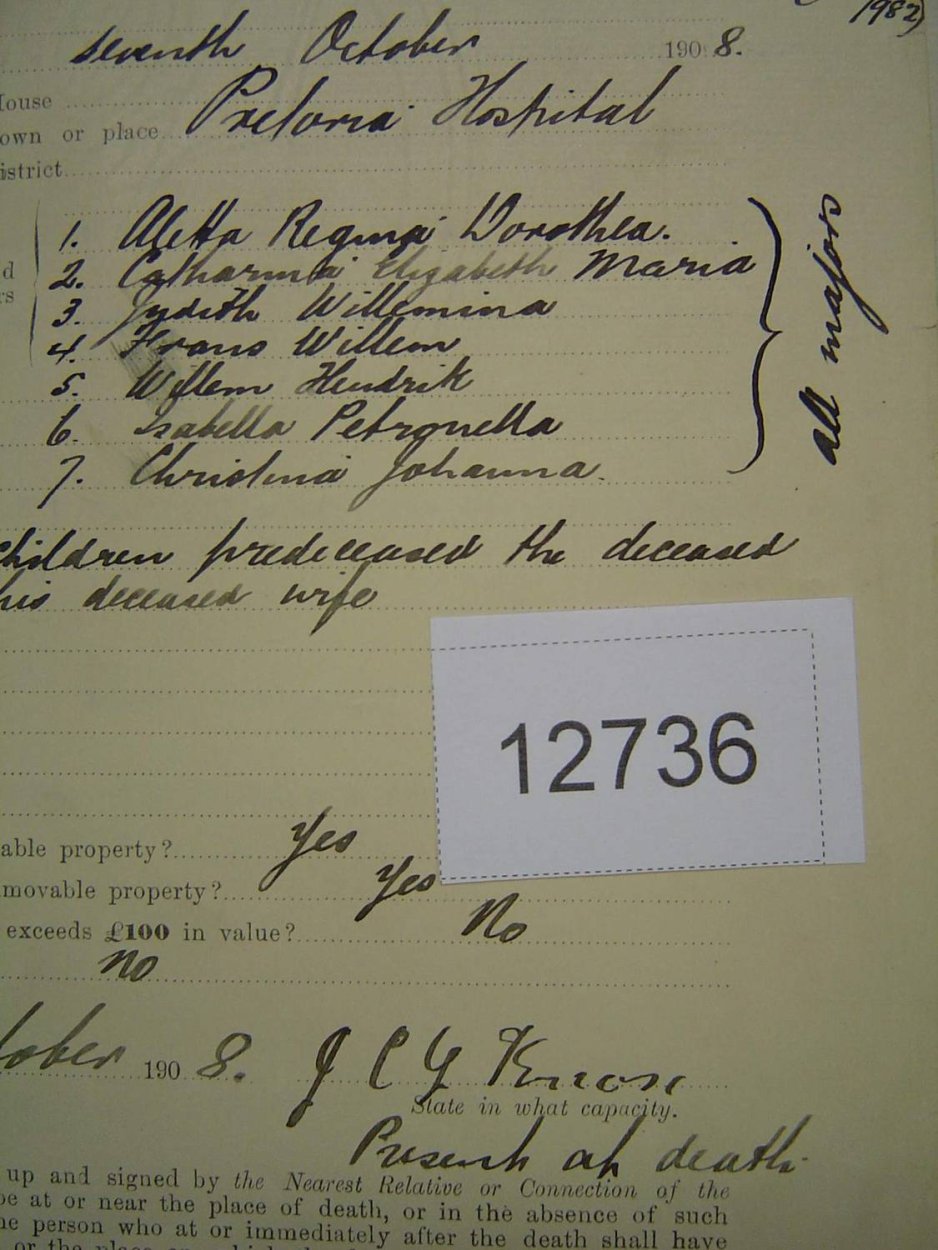 1982)
seventh October 1908.
House
own or place Pretoria Hospital
istrict
1. Aletta Regina Dorothea.
2. Catharina Elizabeth Maria
d
rs
3. Judith Willemina
4. Frans Willem
5. Willem Hendrik
6. Isabella Petronella
7. Christina Johanna.
all majors
children predeceased the deceased
his deceased wife
12736
able property? Yes
movable property? Yes
exceeds £100 in value? No
no
tober 1908. J C G
State in what capacity.
Present at death.
up and signed by the Nearest Relative or Connection of the
be at or near the place of death, or in the absence of such
he person who at or immediately after the death shall have
or the place